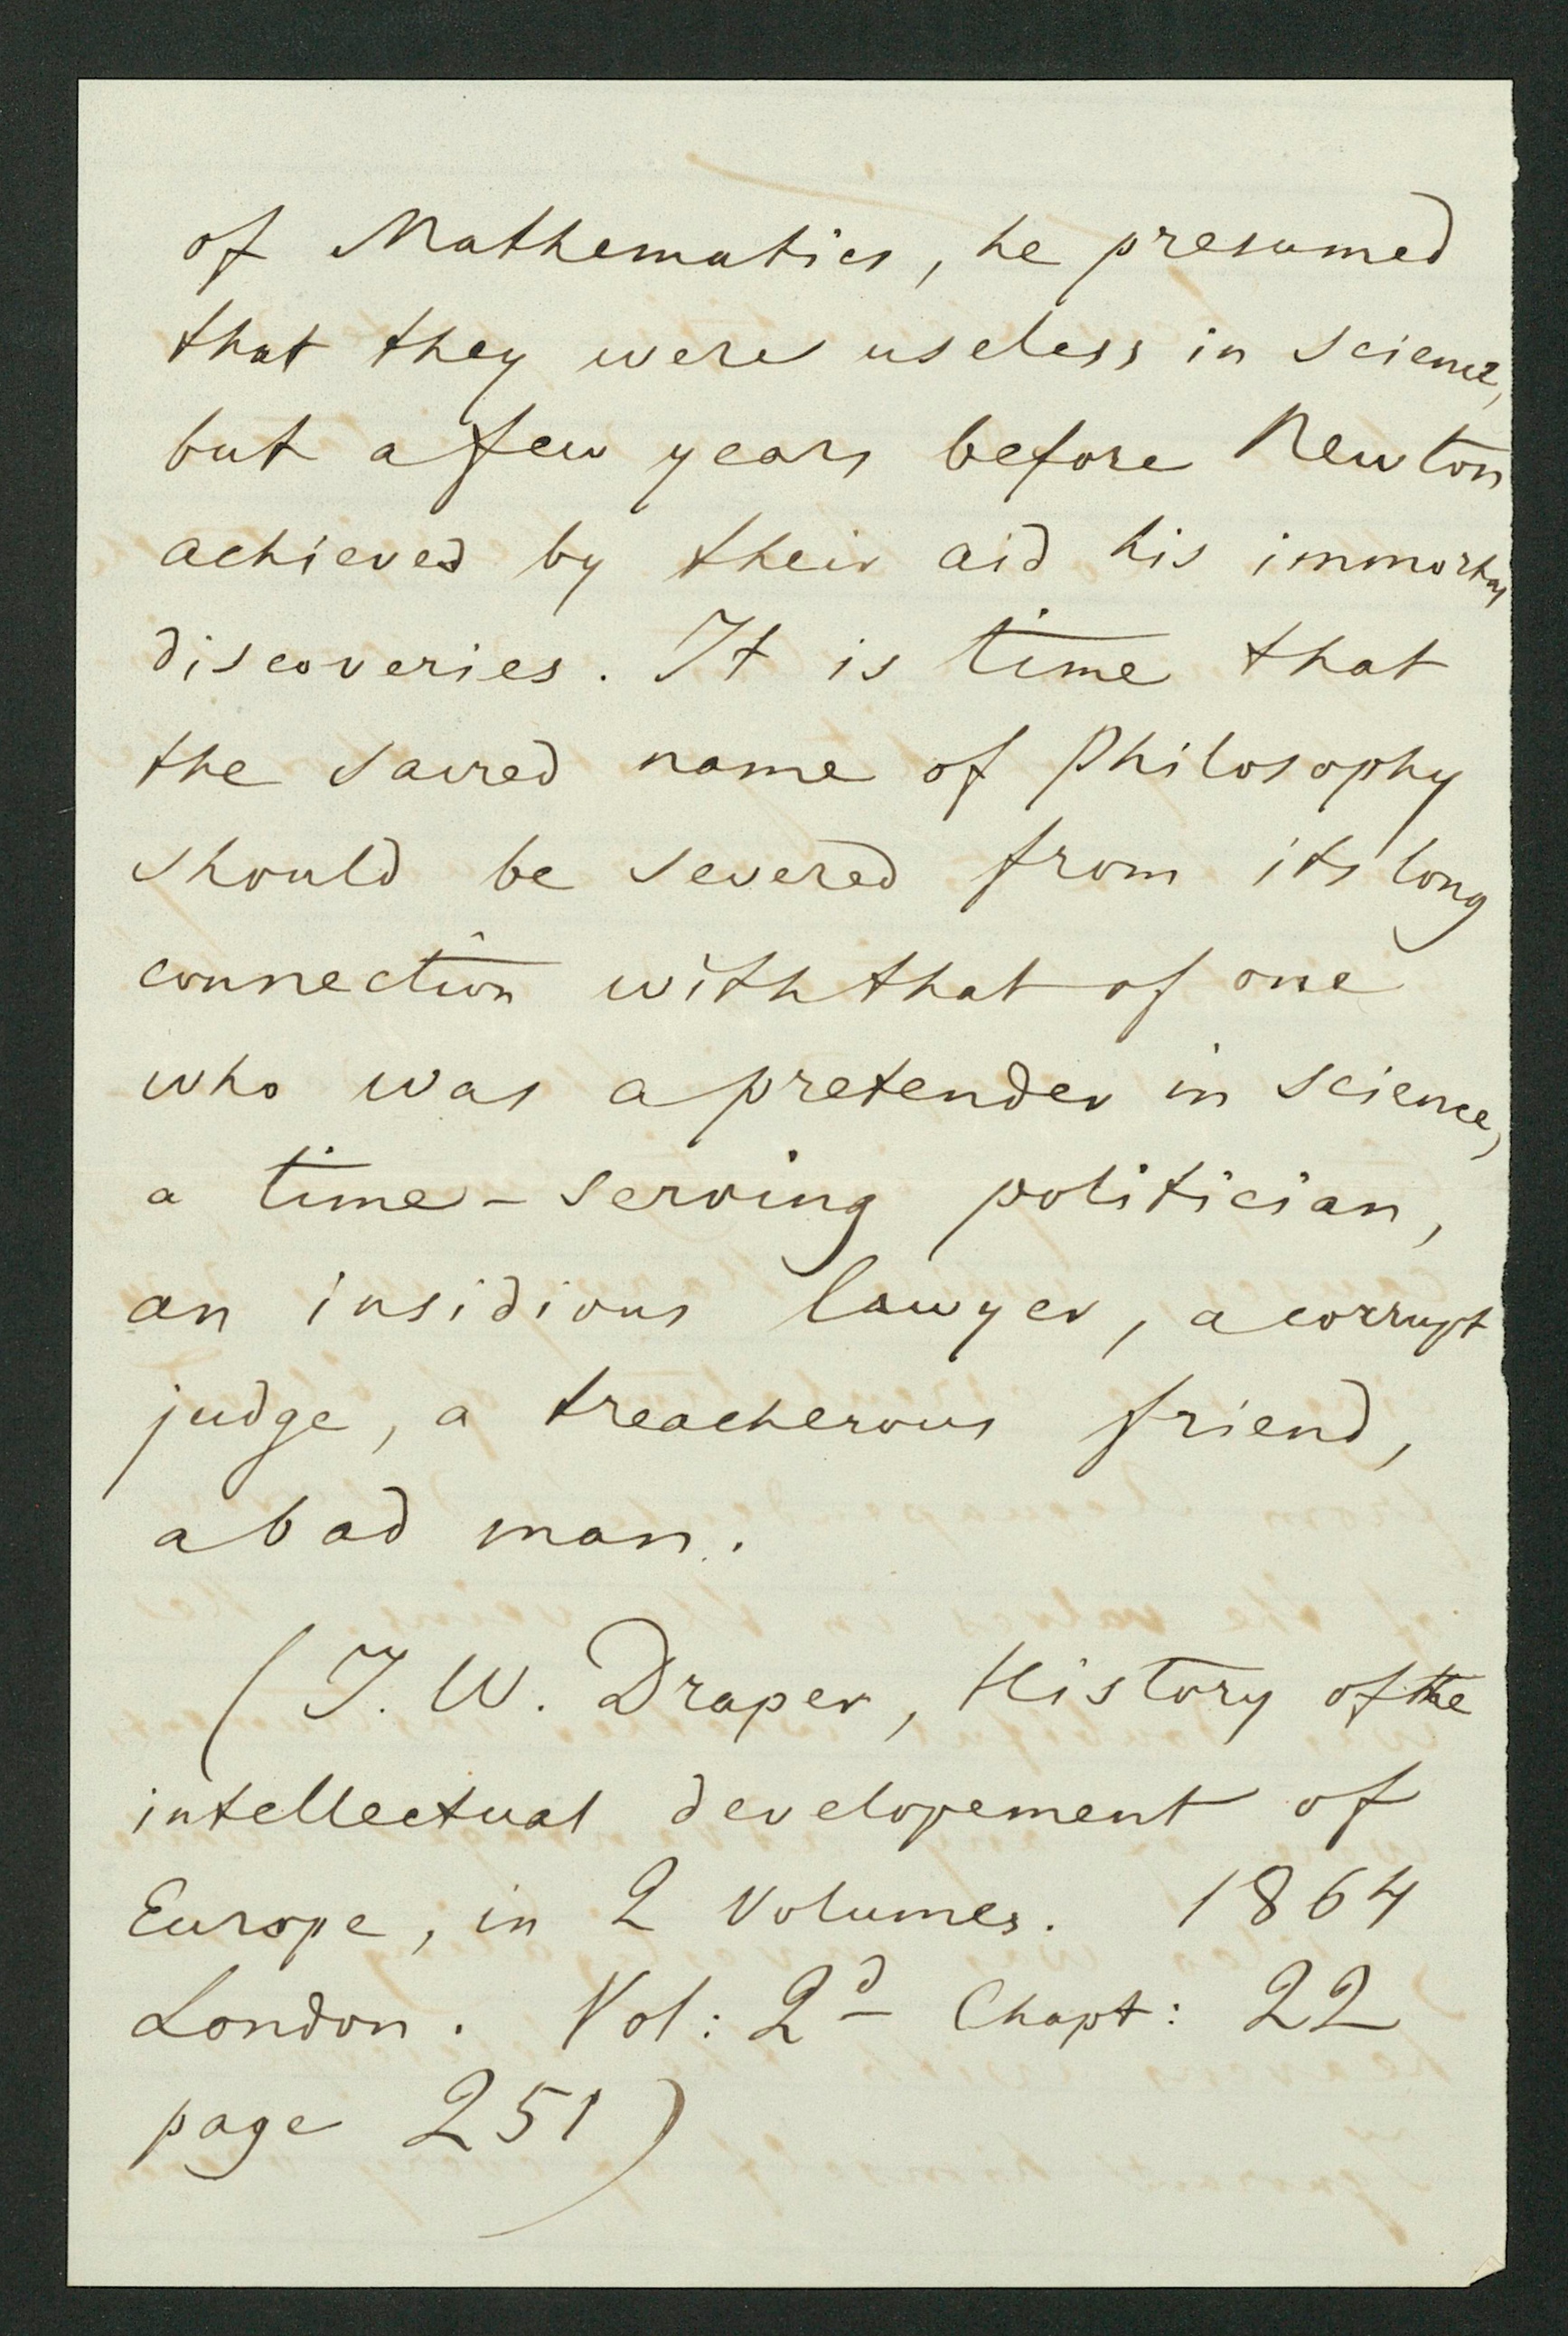 of Mathematics, he presumed
that they were useless in science,
but a few years before Newton
achieved by their aid his immortal
discoveries. It is time that
the sacred name of Philosophy
should be severed from its long
connection with that of one
who was a pretender in science,
a time-serving politician,
an insidious lawyer, a corrupt
judge, a treacherous friend,
a bad man.
(J. W. Draper, History of the
intellectual developement of
Europe, in 2 Volumes. 1864
London. Vol: 2d Chapt: 22
page 251)